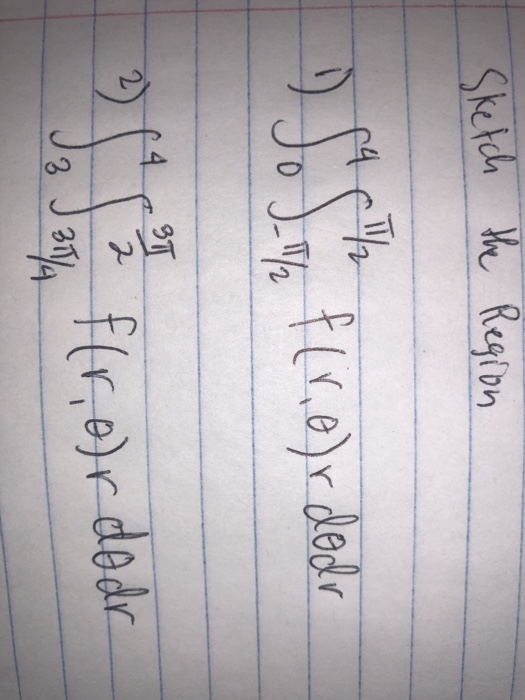 Sketch the Region
1) ∫₀⁴ ∫_{-π/2}^{π/2} f(r,θ) r dθdr
2) ∫₃⁴ ∫_{3π/4}^{3π/2} f(r,θ) r dθdr